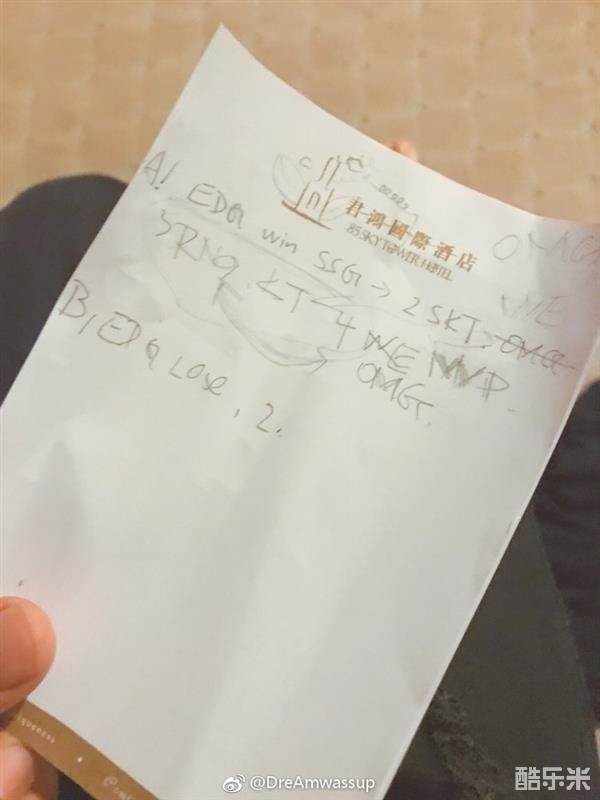 君鴻國際酒店
85 SKY TOWER HOTEL
OMG
WE
A! EDG win SSG → 2 SKT, OMG
3 RNG KT 4 WE MVP
OMG.
B, EDG Lose, 2.
@DreAmwassup
酷乐米